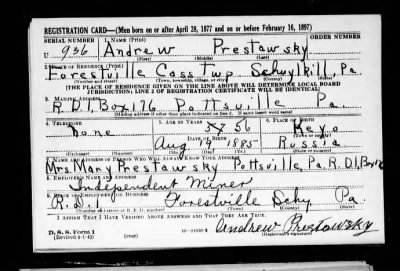 REGISTRATION CARD—(Men born on or after April 28, 1877 and on or before February 16, 1897)
SERIAL NUMBER 1. NAME (Print) ORDER NUMBER
U 936 Andrew Prestowsky
(First) (Middle) (Last)
2. PLACE OF RESIDENCE (Print)
Forestville Cass twp Schuylkill, Pa.
(Number and street) (Town, township, village, or city) (County) (State)
[THE PLACE OF RESIDENCE GIVEN ON THE LINE ABOVE WILL DETERMINE LOCAL BOARD
JURISDICTION; LINE 2 OF REGISTRATION CERTIFICATE WILL BE IDENTICAL]
3. MAILING ADDRESS
R.D.1, Box 176 Pottsville Pa.
[Mailing address if other than place indicated on line 2. If same insert word same]
4. TELEPHONE 5. AGE IN YEARS 6. PLACE OF BIRTH
None 56
DATE OF BIRTH
Aug 14 1885 Russia
(Mo.) (Day) (Yr.) (State or country)
7. NAME AND ADDRESS OF PERSON WHO WILL ALWAYS KNOW YOUR ADDRESS
Mrs. Mary Prestowsky Pottsville, Pa. R.D.1, Box 176
8. EMPLOYER'S NAME AND ADDRESS
Independent Miner
9. PLACE OF EMPLOYMENT OR BUSINESS
R.D.1 Forestville Schy. Pa.
(Number and street or R. F. D. number) (Town) (County) (State)
I AFFIRM THAT I HAVE VERIFIED ABOVE ANSWERS AND THAT THEY ARE TRUE.
D. S. S. Form 1
(Revised 4-1-42) (over)
Andrew Prestowsky
(Registrant's signature)